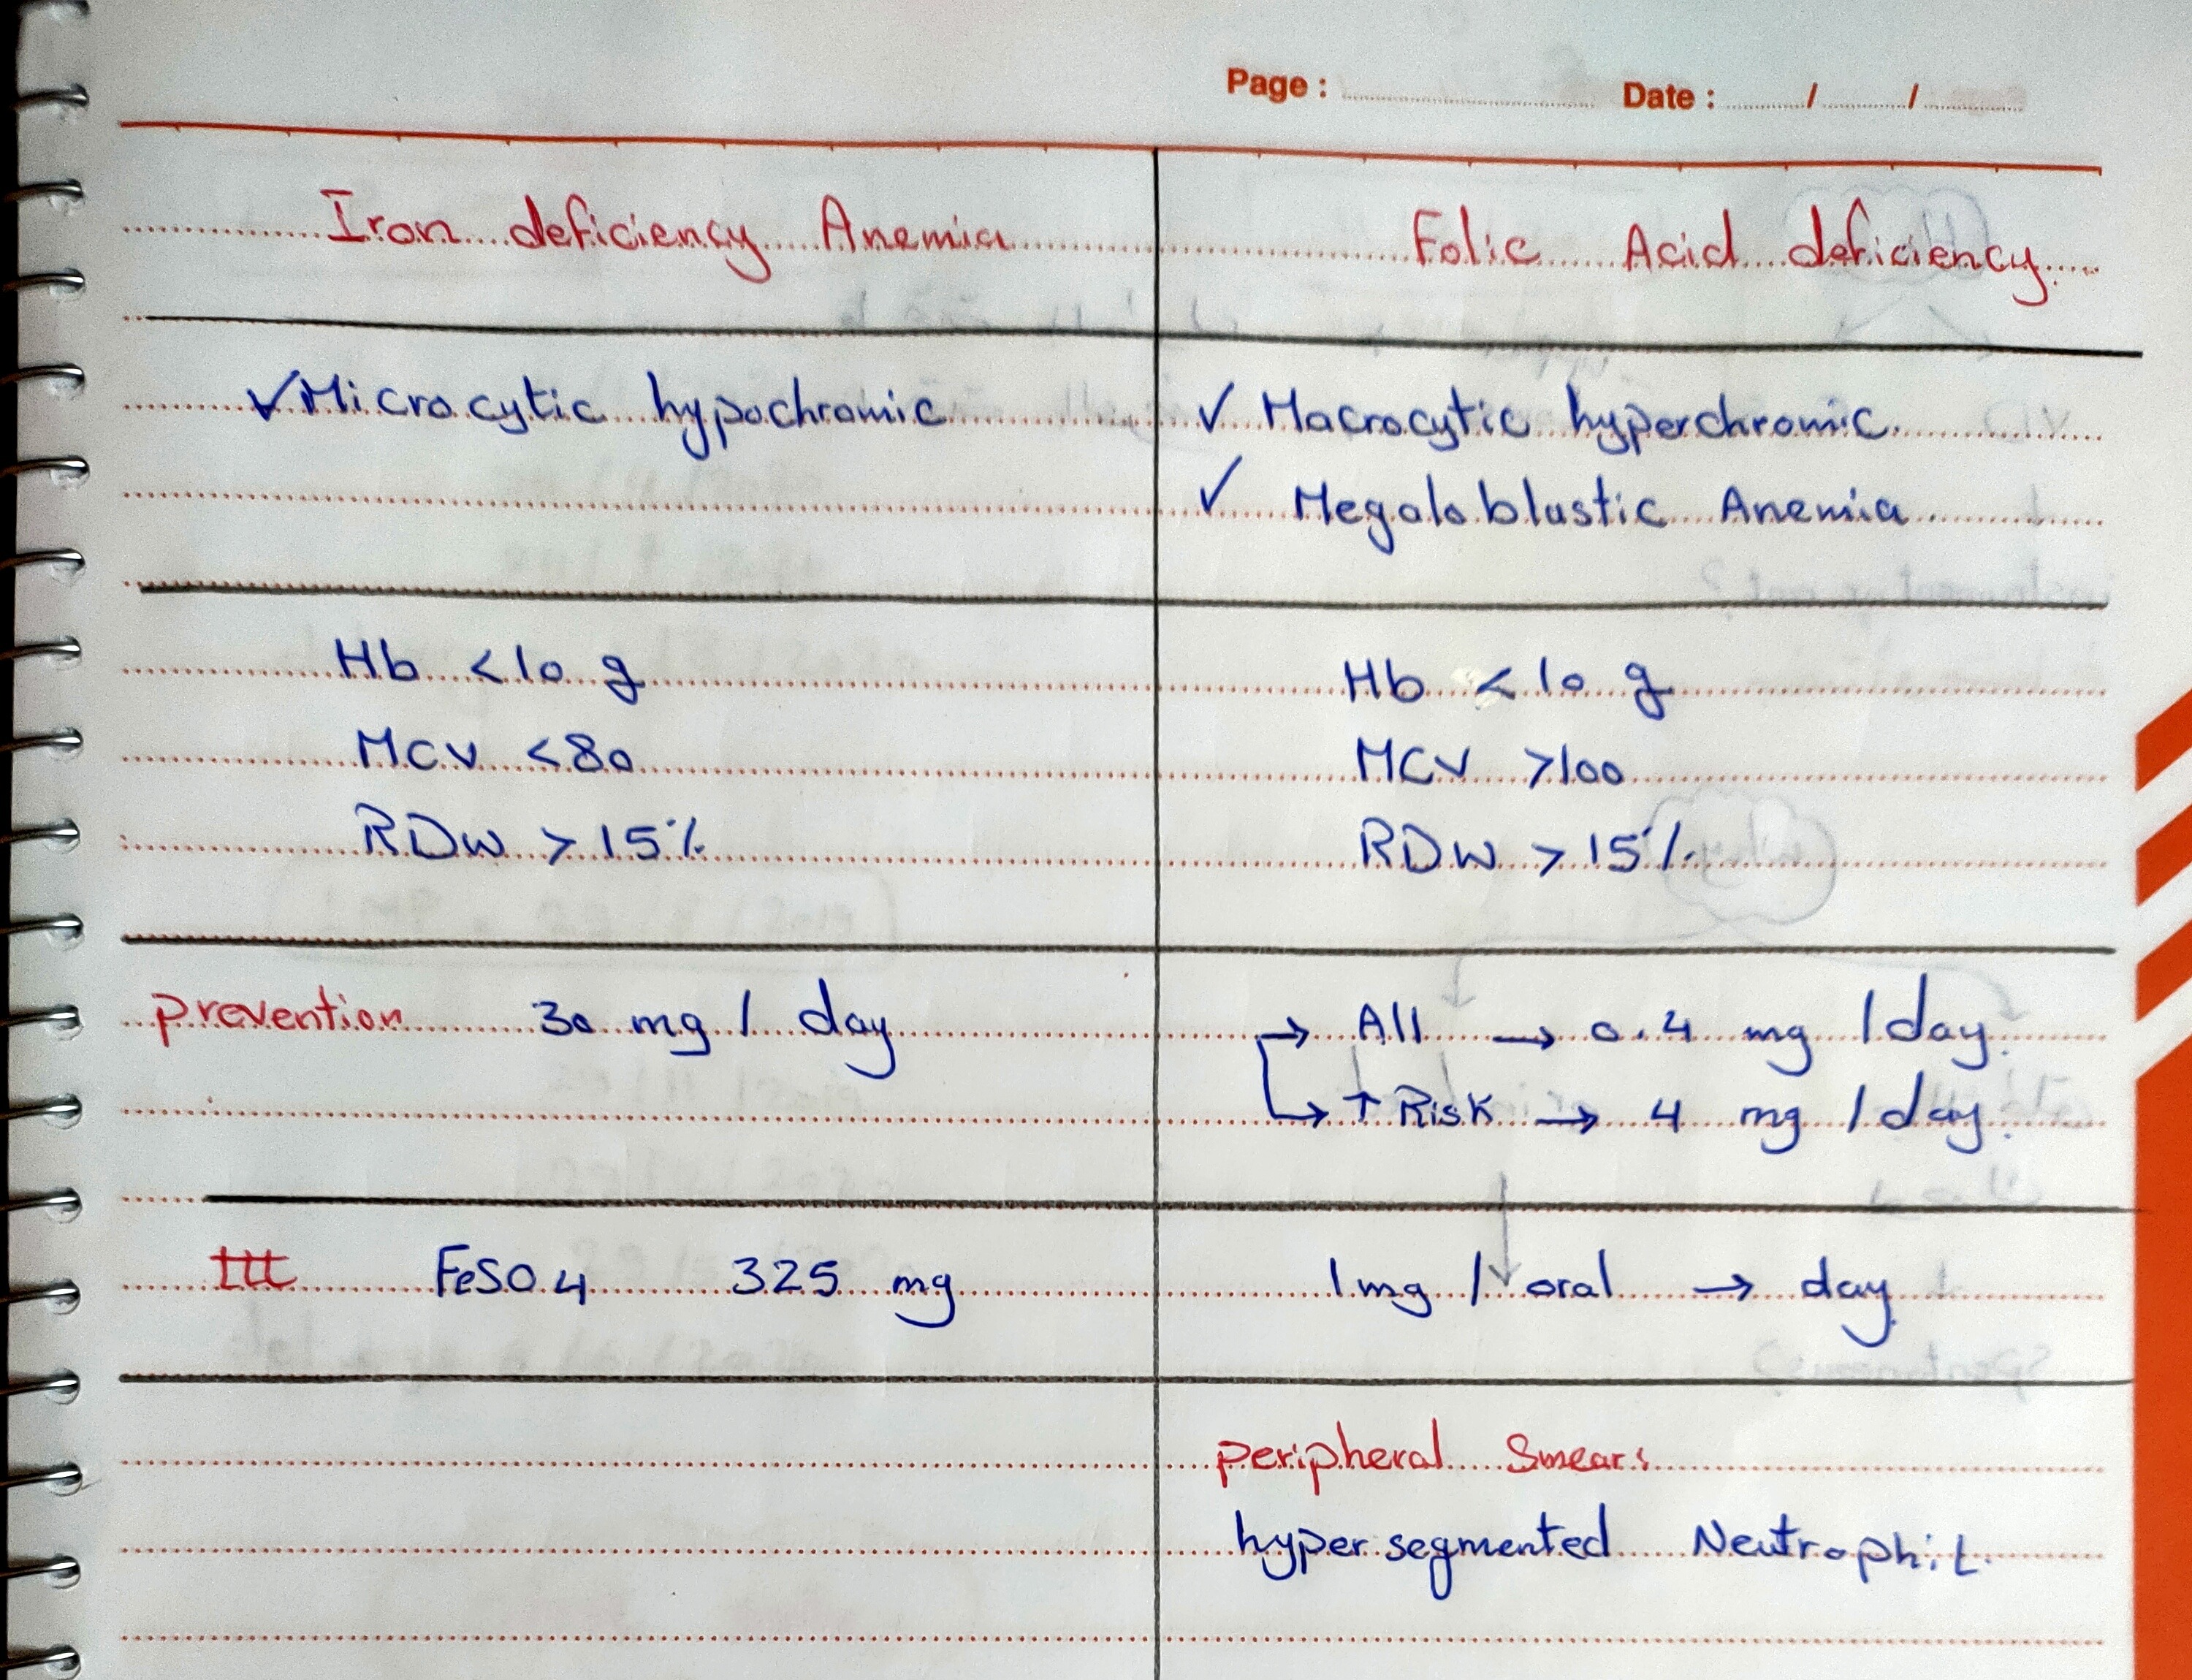 Page : Date : / /
Iron deficiency Anemia Folic Acid deficiency
✓ Microcytic hypochromic ✓ Macrocytic hyperchromic.
✓ Megaloblastic Anemia
Hb < 10 g Hb < 10 g
MCV < 80 MCV > 100
RDW > 15% RDW > 15%
prevention 30 mg / day → All → 0.4 mg / day.
→ ↑ Risk → 4 mg / day.
ttt FeSO4 325 mg 1 mg / oral → day
peripheral Smear:
hyper segmented Neutrophil.